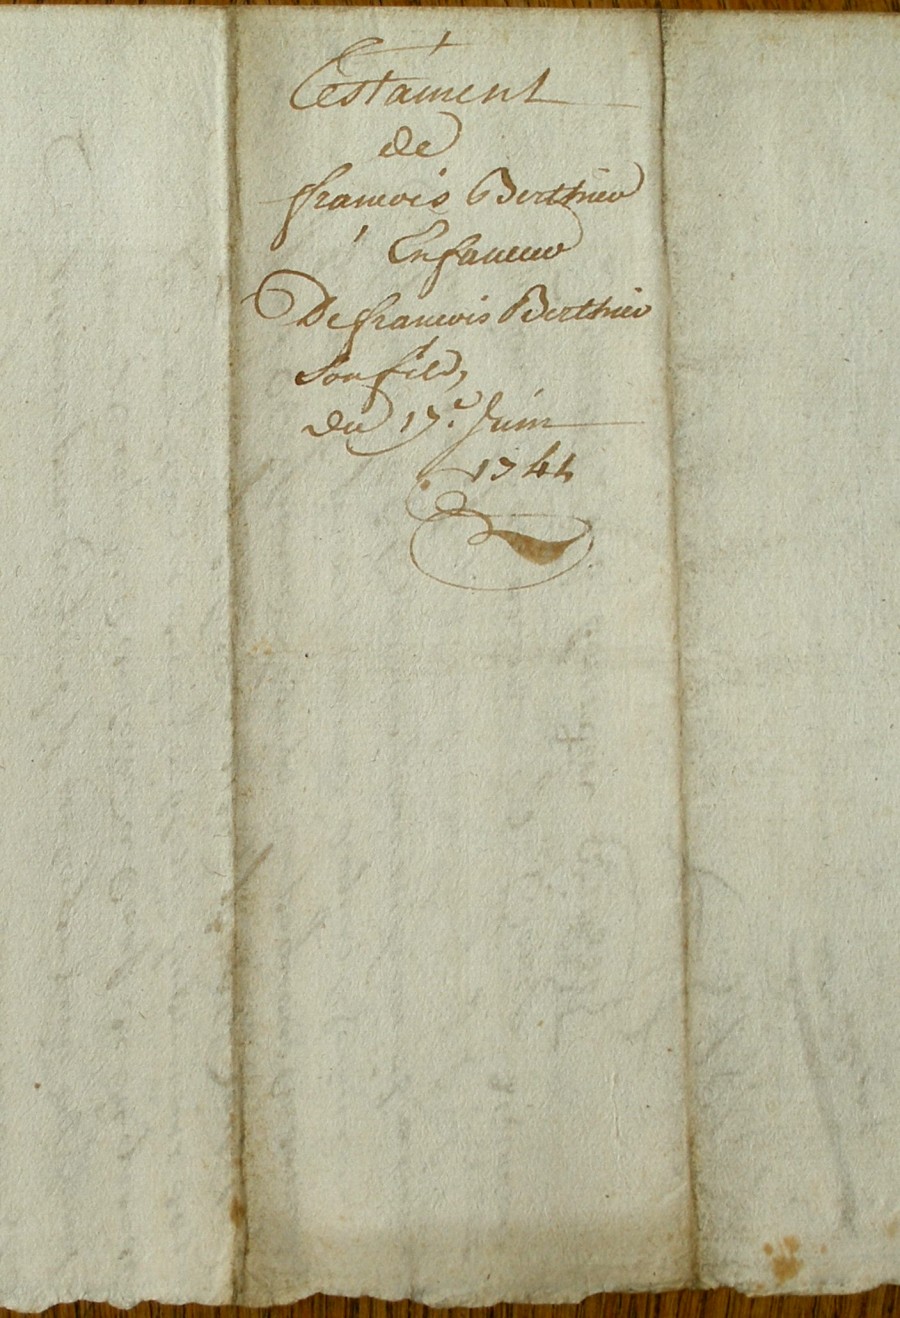 Testament
de
francois Berthier
En faveur
De francois Berthier
Son fils,
du 17.e Juin
1744